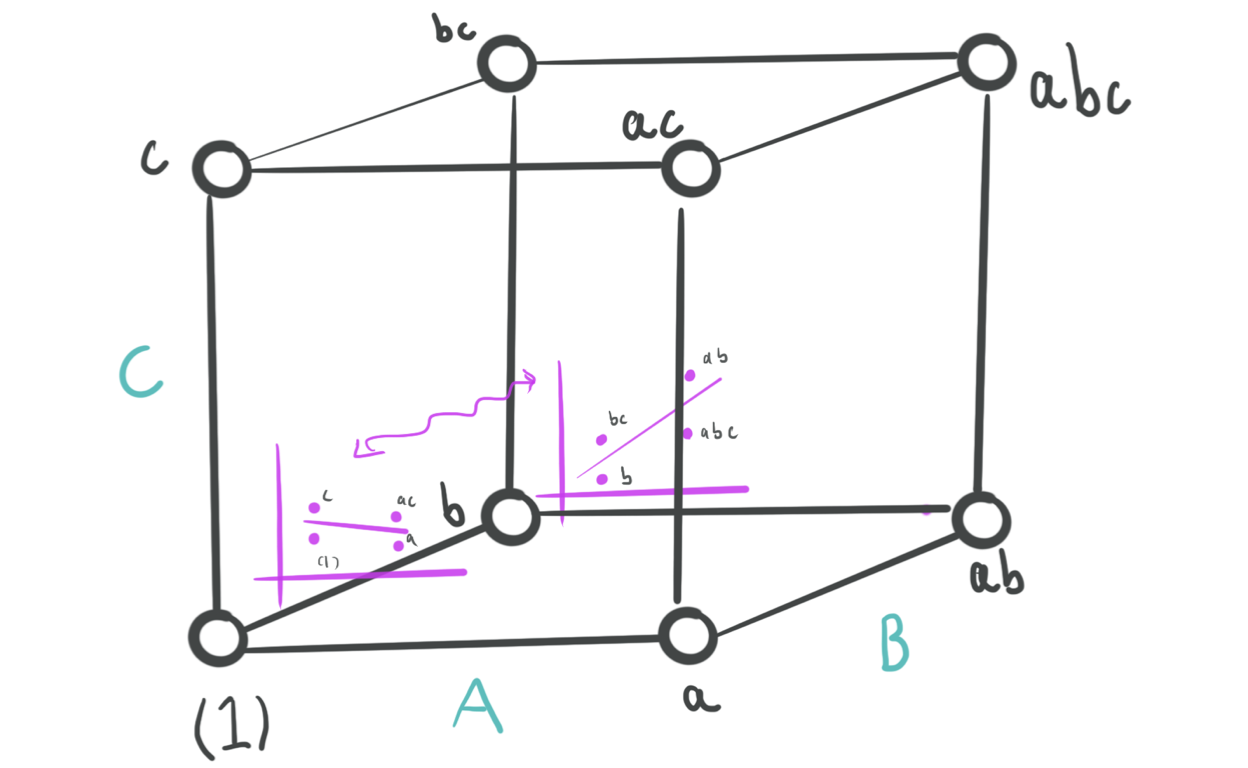 bc
abc
ac
c
C
ab
bc
abc
b
c
ac
b
a
(1)
ab
B
(1)
A
a